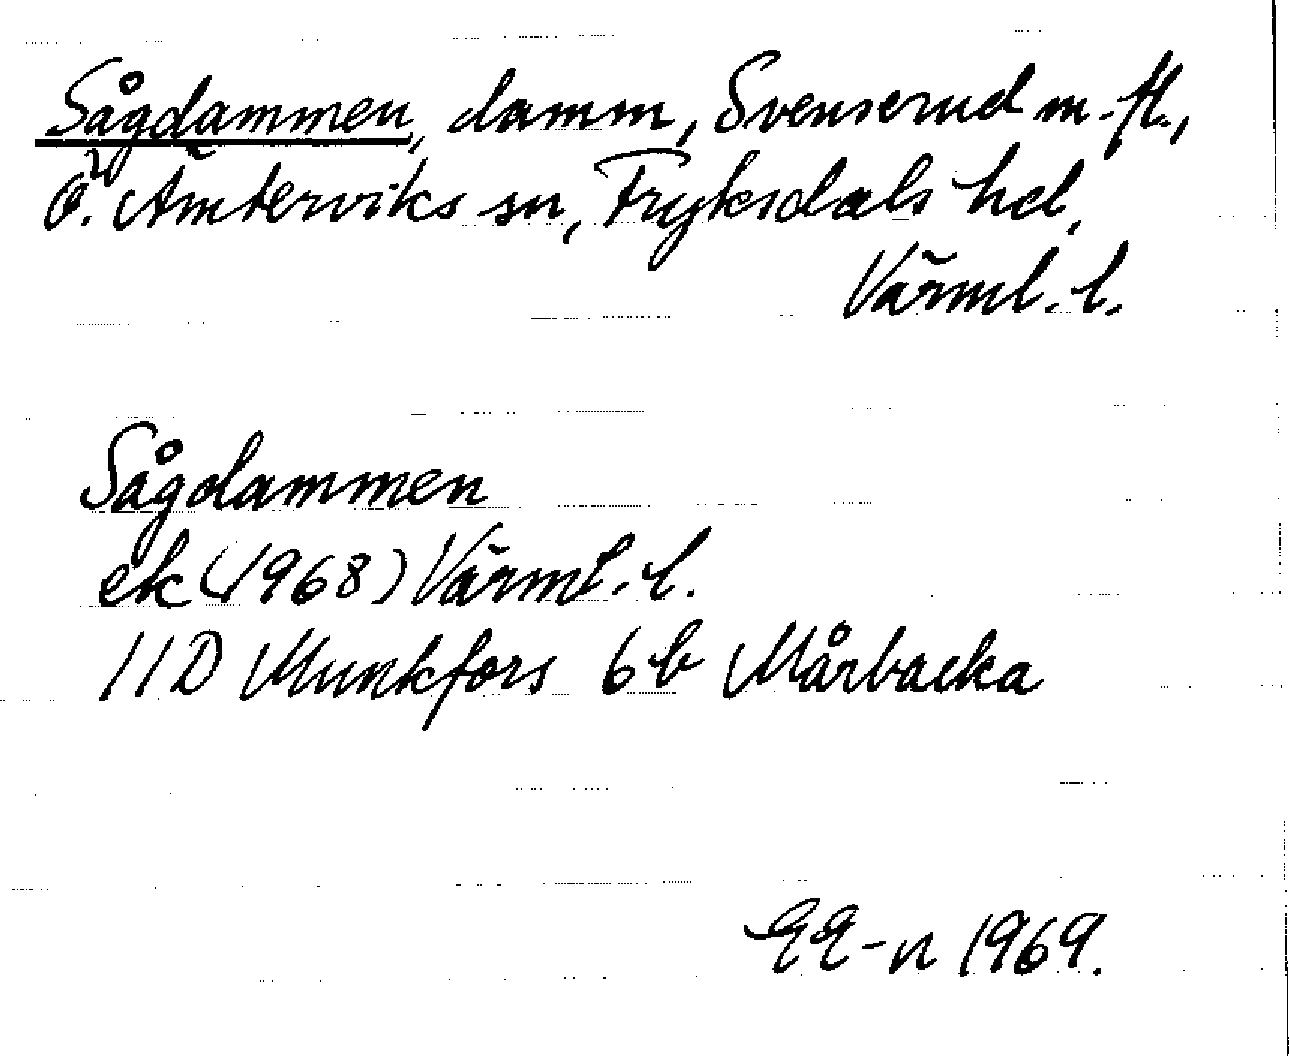 Sågdammen, damm, Svenserud m. fl.,
Ö. Ämterviks sn, Fryksdals hd,
Värml. l.
Sågdammen
ek (1968) Värml. l.
11D Munkfors 6b Mårbacka
EE-n 1969.